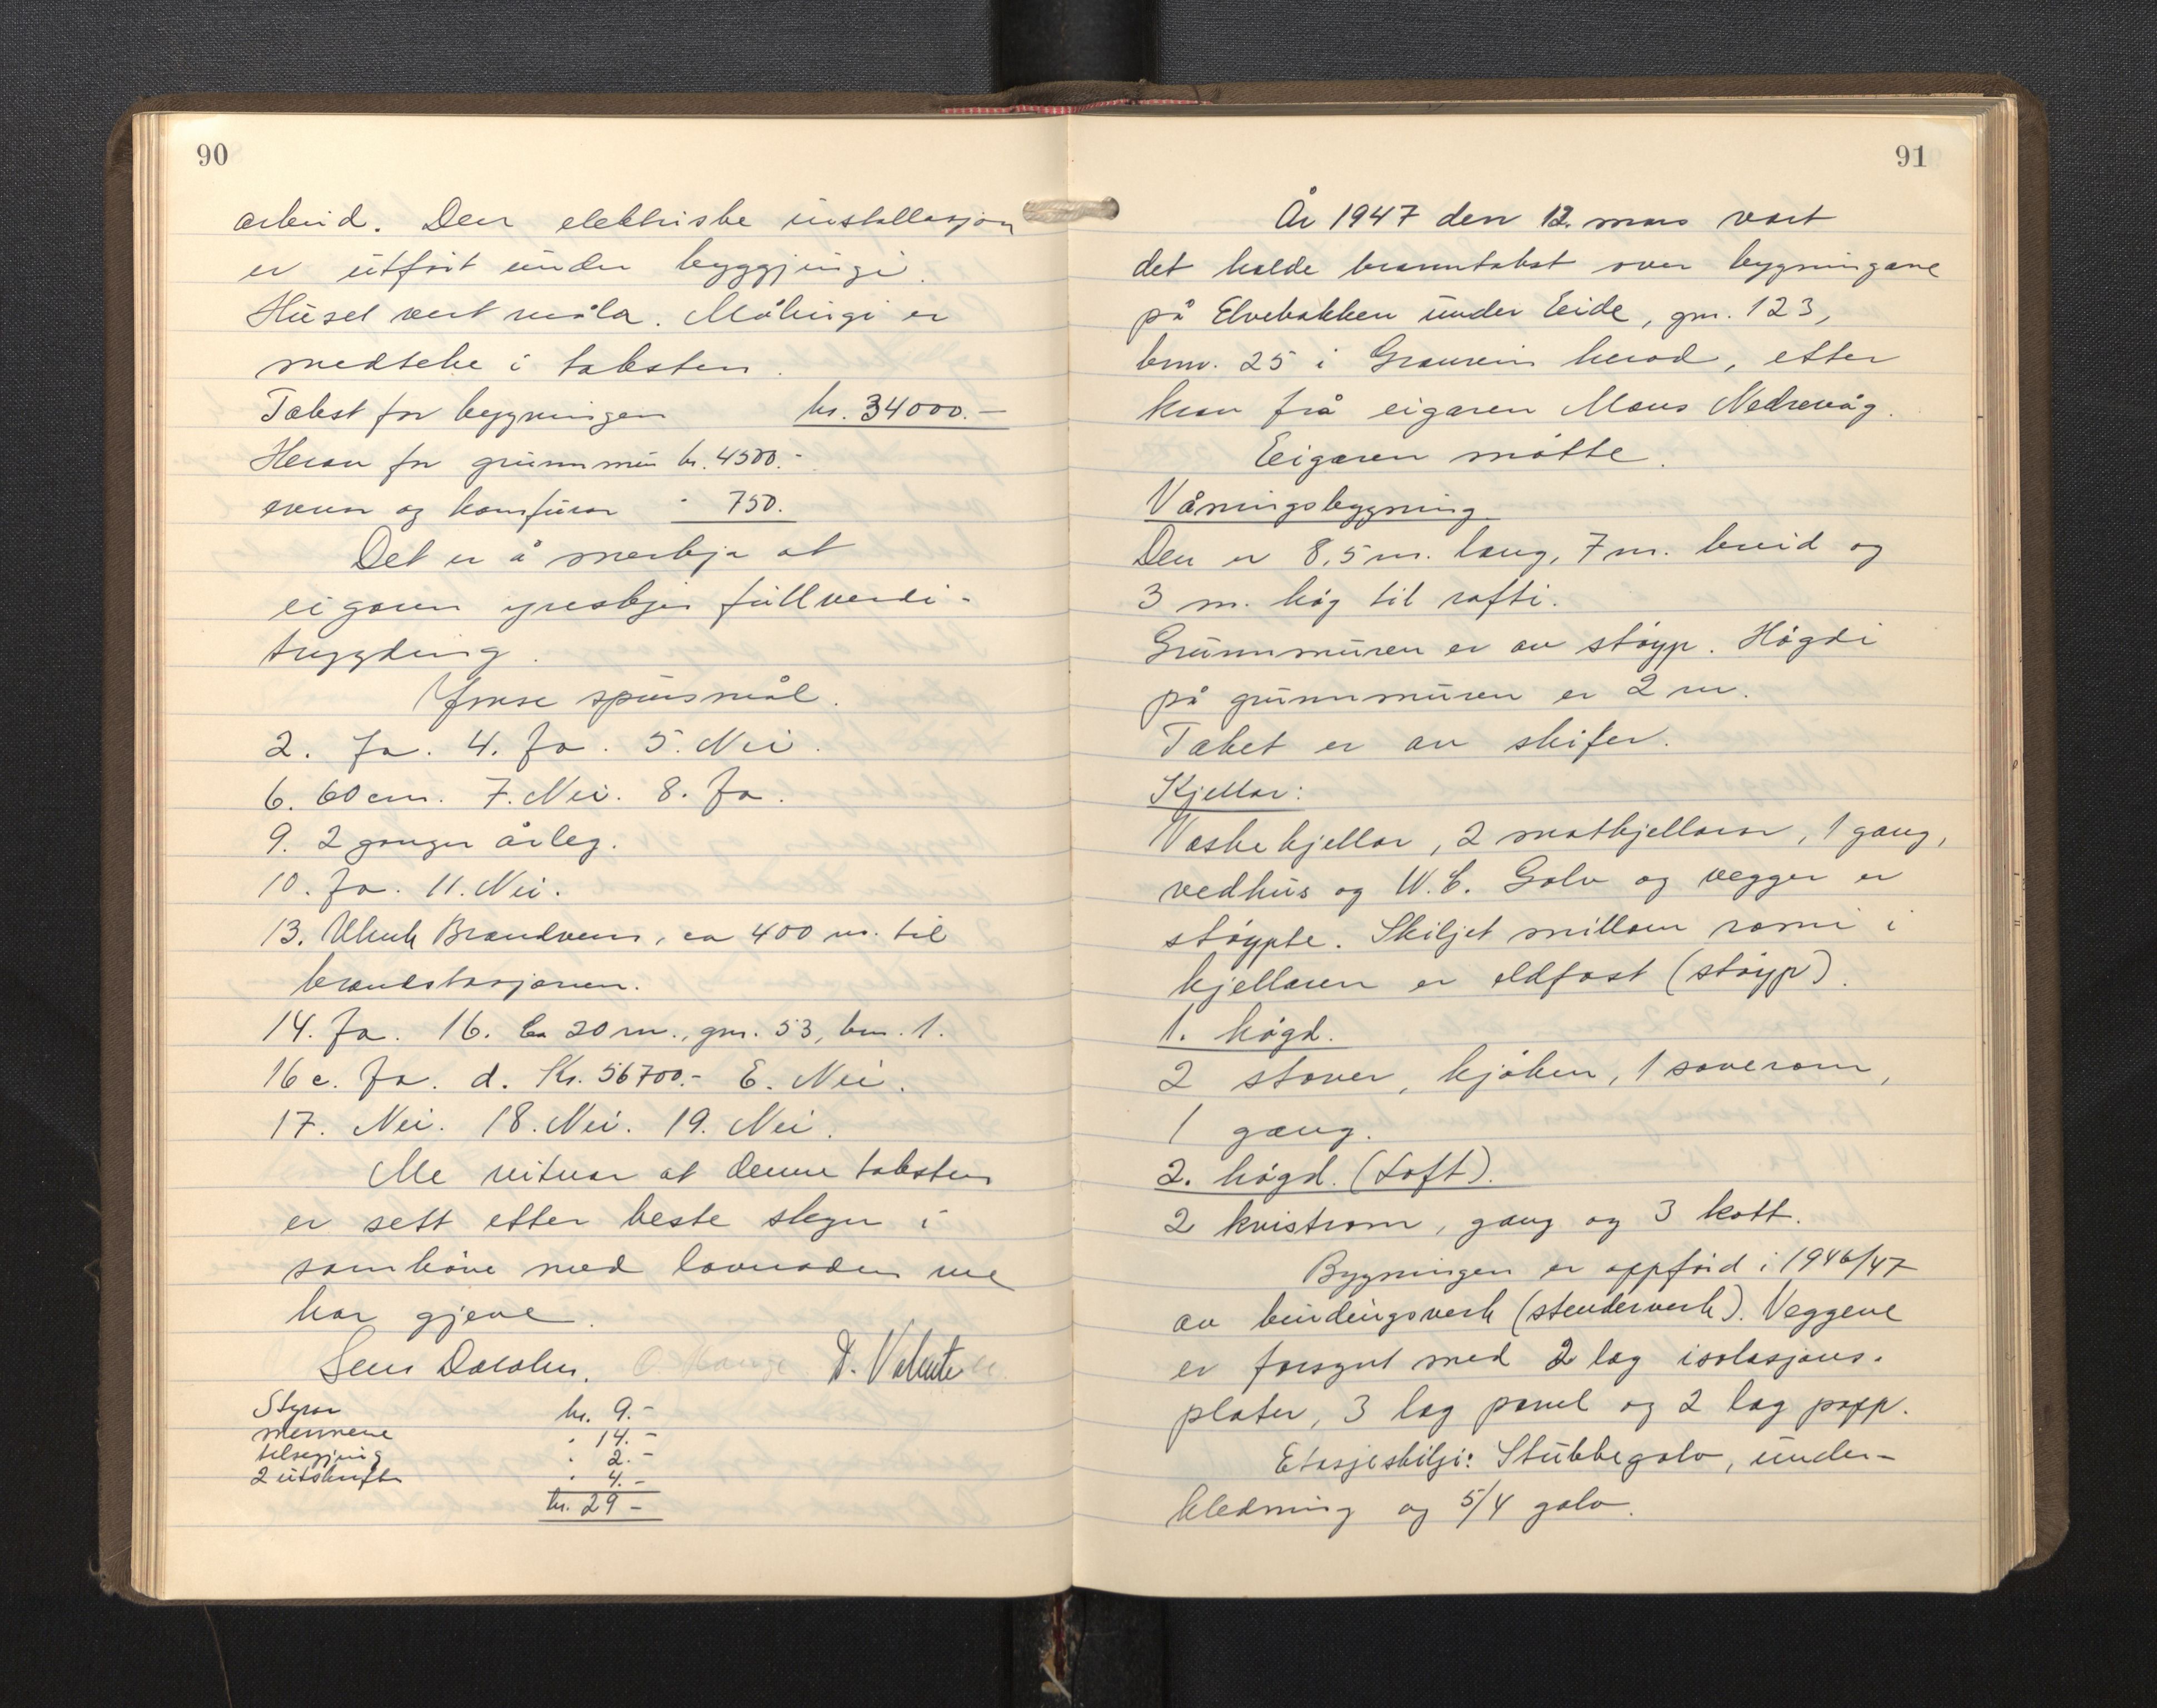 90
arbeid. Den elektriske installasjon
er utført under byggjingi.
Huset vert måla. Målingi er
medteke i taksten.
Takst for bygningen kr. 34000.-
Herav for grunnmur kr. 4500.-
ovnar og komfurar " 750.
Det er å merkja at
eigaren ynskjer fullverdi-
trygding.
Ymse spursmål.
2. Ja. 4. Ja. 5. Nei.
6. 60 cm. 7. Nei. 8. Ja.
9. 2 gonger årleg.
10. Ja. 11. Nei.
13. Ulvik Brandvern, ca 400 m. til
brandstasjonen.
14. Ja. 16. Ca 20 m., gnr. 53, bnr. 1.
16 c. Ja. d. Kr. 56700.- E. Nei.
17. Nei. 18. Nei. 19. Nei.
Me vitnar at denne taksten
er sett etter beste skyn i
samhøve med lovnaden me
har gjeve.
Styrar kr. 9.-
mennene " 14.-
tilsegjing " 2.-
2 utskrifter " 4.-
kr. 29-
91
År 1947 den 12. mars vart
det halde branntakst over bygningane
på Elvebakken under Eide, gnr. 123,
bnr. 25 i Granvin herad, etter
krav frå eigaren Mons Nedrevåg.
Eigaren møtte.
Våningsbygning
Den er 8,5 m. lang, 7 m. breid og
3 m. høg til rafti.
Grunnmuren er av støyp. Høgdi
på grunnmuren er 2 m.
Taket er av skifer.
Kjellar:
Vaskekjellar, 2 matkjellarar, 1 gang,
vedhus og W.C. Golv og vegger er
støypte. Skiljet millom romi i
kjellaren er eldfast (støyp).
1. høgd.
2 stover, kjøken, 1 soverom,
1 gang.
2. høgd. (Loft).
2 kvistrom, gang og 3 kott.
Bygningen er oppførd i 1946/47
av bindingsverk (stenderverk). Veggene
er forsynt med 2 lag isolasjons-
plater, 3 lag panel og 2 lag papp.
Etasjeskilji: Stubbegolv, under-
kledning og 5/4 golv.